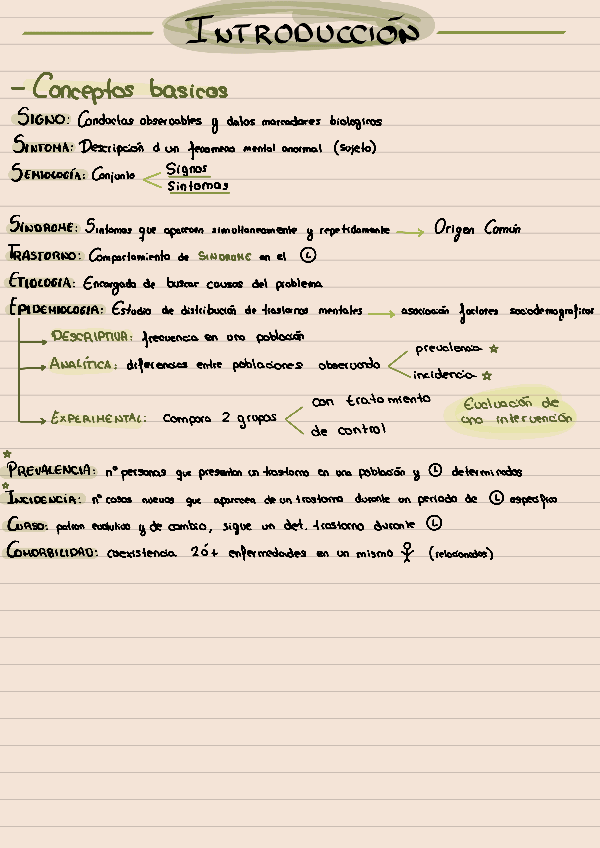 INTRODUCCIÓN
- Conceptos basicos
SIGNO: Conductas observables y datos marcadores biologicos
SINTOMA: Descripción d un fenomeno mental anormal (sujeto)
SEMIOLOGÍA: Conjunto
Signos
Sintomas
SINDROME: Sintomas que aparecen simultaneamente y repetidamente → Origen Común
TRASTORNO: Comportamiento de SINDROME en el
ETIOLOGIA: Encargada de buscar causas del problema
EPIDEMIOLOGIA: Estudio de distribución de trastornos mentales → asociación factores sociodemograficos
DESCRIPTIVA: frecuencia en una población
ANALÍTICA: diferencias entre poblaciones observando
prevalencia ☆
incidencia ☆
EXPERIMENTAL: compara 2 grupos
con tratamiento
de control
Evaluación de
una intervención
☆
PREVALENCIA: nº personas que presentan un trastorno en una población y determinados
☆
INCIDENCIA: nº casos nuevos que aparecen de un trastorno durante un periodo de especifico
CURSO: patron evolutivo y de cambio, sigue un det. trastorno durante
COMORBILIDAD: coexistencia 2 ó + enfermedades en un mismo (relacionados)